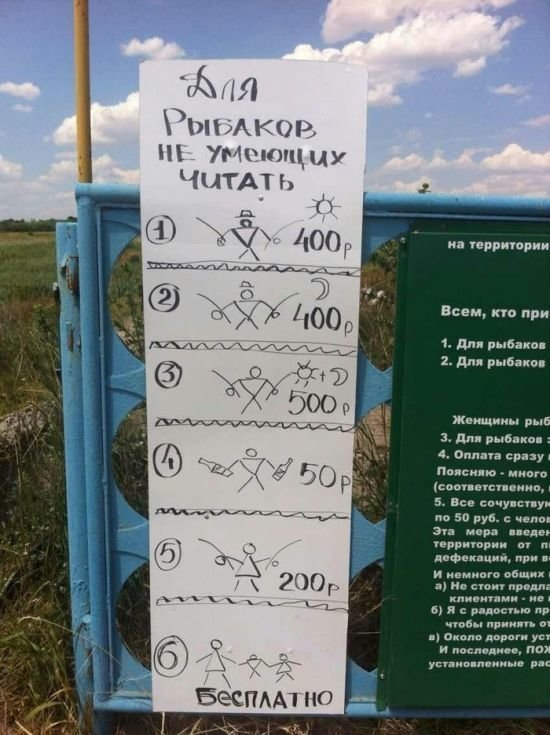 Для
РЫБАКОВ
НЕ УМЕЮЩИХ
ЧИТАТЬ
1 400р
2 400р
3 + 500р
4 50р
5 200р
6
БЕСПЛАТНО
на территории
Всем, кто при
1. Для рыбаков
2. Для рыбаков
Женщины рыб
3. Для рыбаков з
4. Оплата сразу
Поясняю - много
(соответственно,
5. Все сочувству
по 50 руб. с чело
Эта мера введен
территории от п
дефекаций, при в
И немного общих
а) Не стоит предла
клиентами - не
б) Я с радостью пр
чтобы принять от
в) Около дороги уст
И последнее, ПОЖ
установленные рас